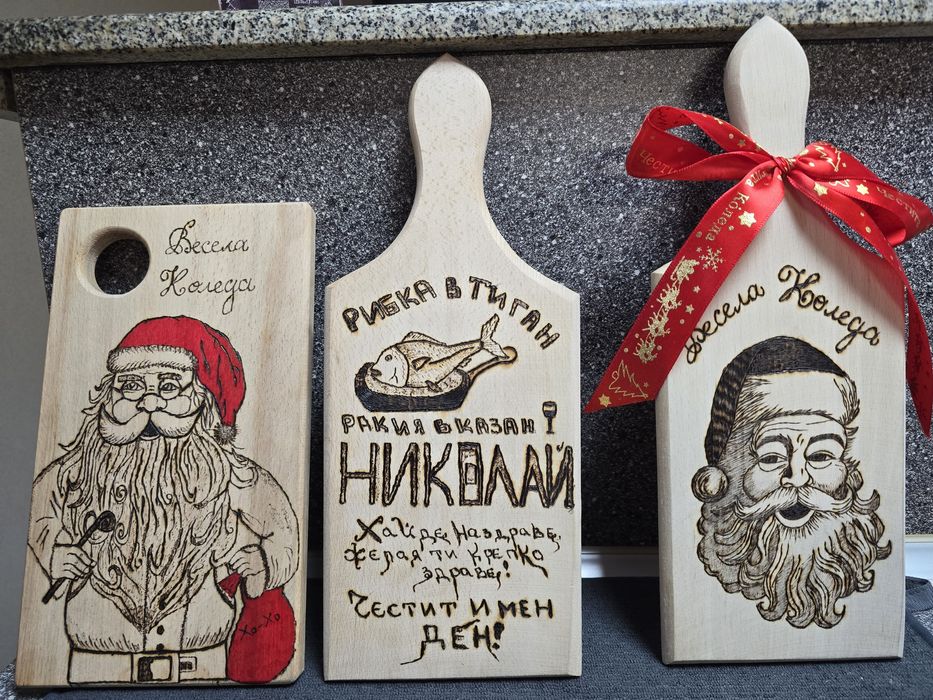 Весела
Коледа
Хо-Хо
РИБКА В ТИГАН
РАКИЯ В КАЗАН
НИКОЛАЙ
Хайде, наздраве,
желая ти крепко
здраве!
Честит имен
ден!
Честит
Коледа
Честит
Весела Коледа